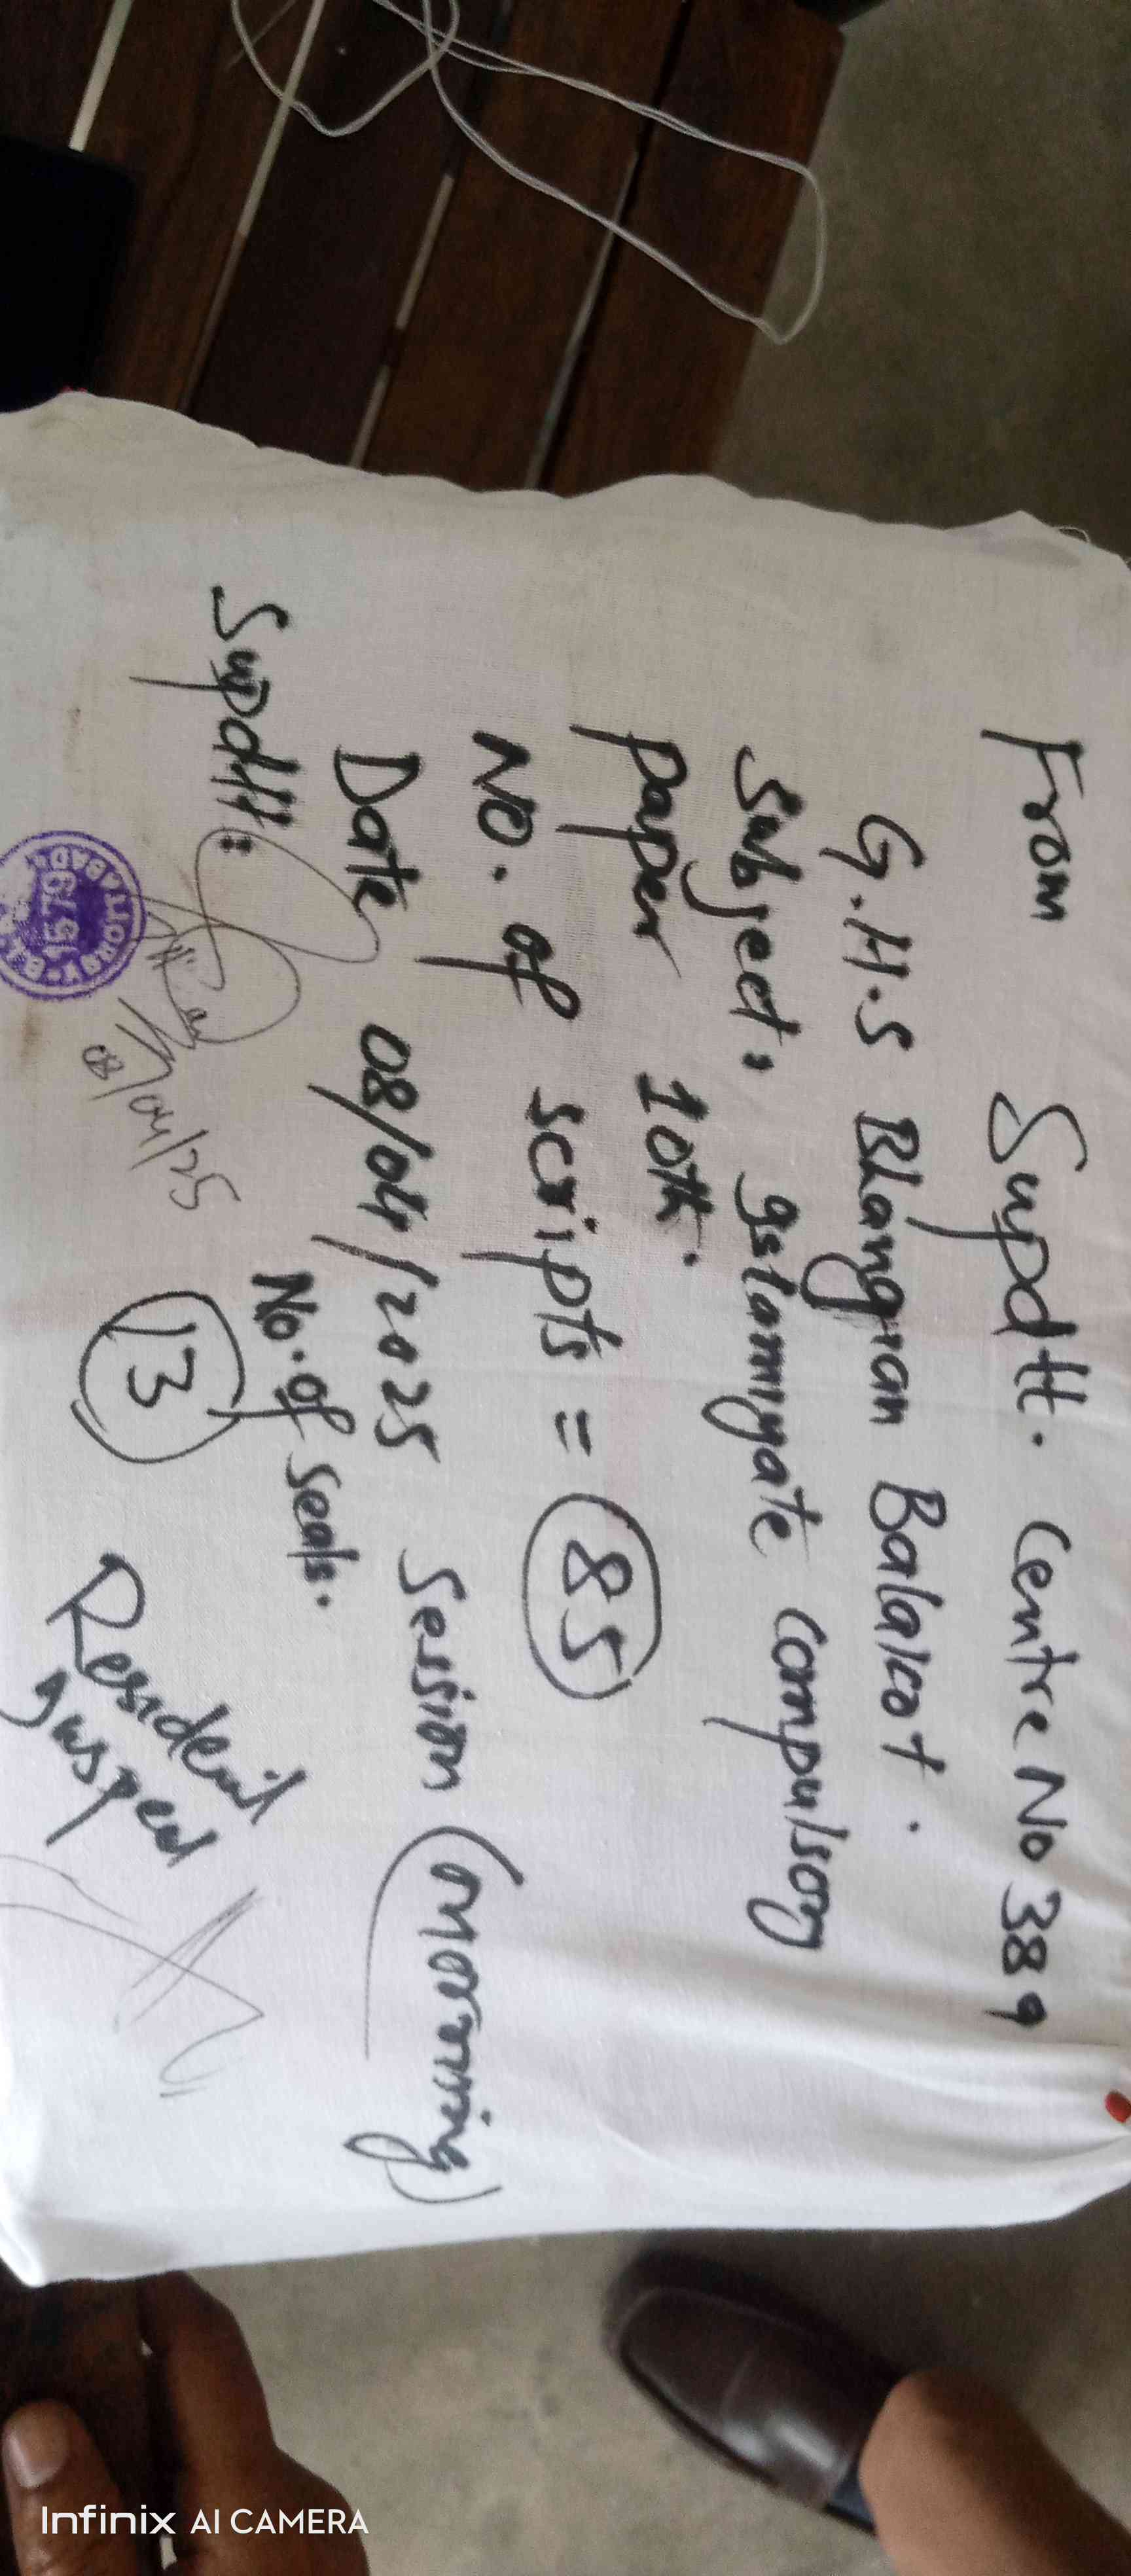 From Supdtt. Centre No 389
G.H.S Bhangian Balakot.
Subject, Islamiyate Compulsory
Paper 10th.
No. of scripts = 85
Date 08/04/2025 Session (Morning)
Supdtt:
08/04/25
No. of Seals.
13
Resident
Inspect
1579
ABBOTTABAD
Infinix AI CAMERA